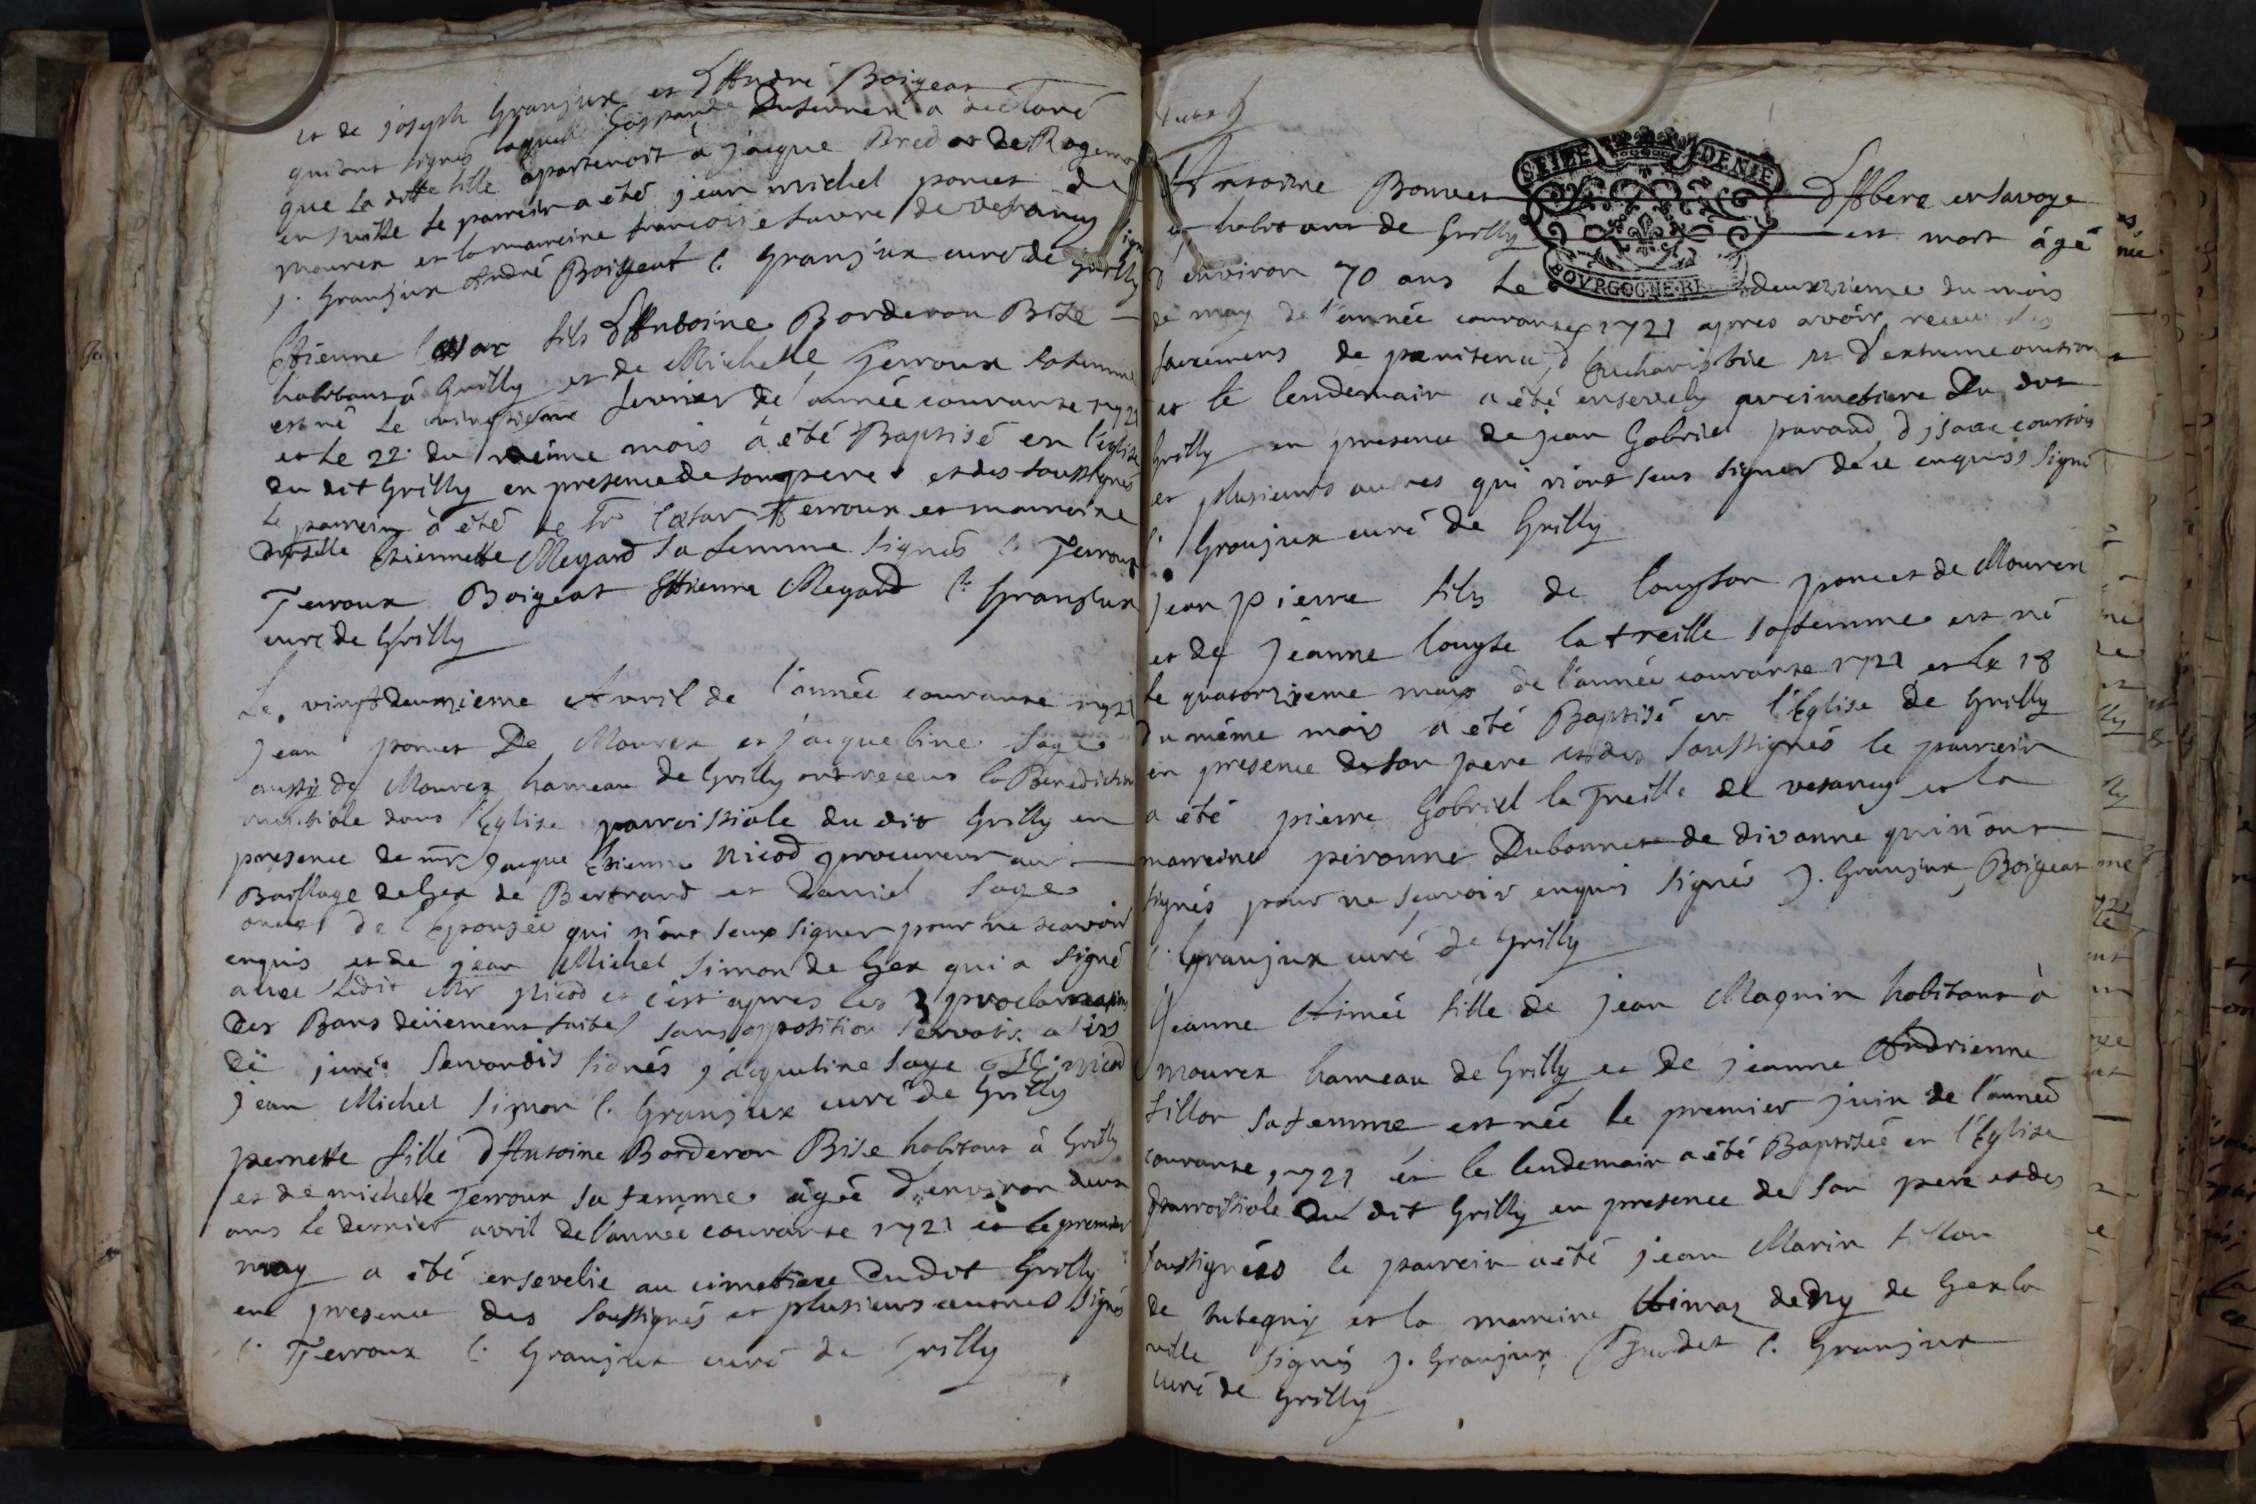 et de joseph Granjux et d'André Boigeat
qui ont signés laquelle Gasparde Dufernex a déclaré
que la ditte fille apartenoit à jacque Bredot de Rogemon
en suitte le parrein a été jean michel poncet de
mourex et la marreine francoise favre de vesancy
j. Granjux André Boigeat C. Granjux curé de Grilly
Etienne Cæsar fils d'Antoine Borderon Bise
habitant à Grilly et de Michelle Terroux sa femme
est né le vingtième fevrier de l'année courante 1721
et le 22. du même mois à été Baptisé en l'église
du dit Grilly en presence de son pere et des soussignés
le parrein à été Cæsar Terroux et marreine
Etiennette Megard sa femme signés C. Terroux
Terroux Boigeat Etienne Megard C. Granjux
curé de Grilly
Le vingtdeuxieme Avril de l'année courante 1721
Jean poncet De Mourex et jacqueline Sage
aussy de Mourex hameau de Grilly ont receus la Benediction
nuptiale dans l'Eglise parroissiale du dit Grilly en
presence de mr. Jacque Etienne Nicod procureur au
Bailliage de Gex de Bertrand et Daniel Sage
oncles de l'Epousée qui n'ont seux signer pour ne scavoir
enquis et de jean Michel Simon de Gex qui a signé
avec ledit Mr Nicod et c'est apres les 3 proclamations
des Bans deüement faites sans opposition
signés jacqueline Sage Nicod
jean Michel Simon C. Granjux curé de Grilly
pernette fille d'Antoine Borderon Bise habitant à Grilly
et de michelle Terroux sa femme âgée d'environ deux
ans le dernier avril de l'année courante 1721 et le premier
may a été ensevelie au cimetiere dudit Grilly
en presence des soussignés et plusieurs autres signés
C. Terroux C. Granjux curé de Grilly
SEIZE DENIE
BOVRGOGNE
Antoine Bouvet d'Abere en Savoye
et habitant de Grilly est mort âgé
d'environ 70 ans le deuxieme du mois
de may de l'année courante 1721 apres avoir receu les
sacremens de penitence, d'Eucharistie et d'extreme onction
et le lendemain a été ensevely au cimetiere du dit
Grilly en presence de jean Gabriel pavand, d'isaac courtois
et plusieurs autres qui n'ont seus signer de ce enquis signé
C. Granjux curé de Grilly
jean pierre fils de louyson poncet de Mourex
et de jeanne louyse la treille sa femme est né
le quatorzieme may de l'année courante 1721 et le 18
du même mois a été Baptisé en l'Eglise de Grilly
en presence de son pere et des soussignés le parrein
a été pierre Gabriel la Treille de vesancy et la
marreine peronne Dubonnet de divonne qui n'ont
signés pour ne sçavoir enquis signés J. Granjux, Boigeat
C. Granjux curé de Grilly
Jeanne Aimée fille de jean Magnin habitant à
mourex hameau de Grilly et de jeanne Andrienne
fillon sa femme est née le premier juin de l'année
courante 1721 et le lendemain a été Baptisée en l'Eglise
parroissiale du dit Grilly en presence de son pere et des
soussignés le parrein a été jean Marin fillon
de tutegny et la marreine Aimaz de Gex la
ville signés J. Granjux C. Granjux
curé de Grilly